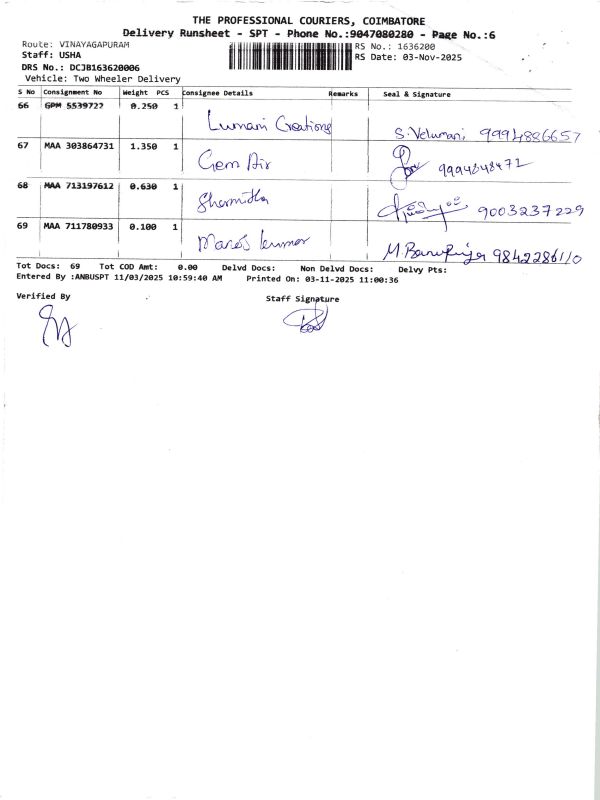 THE PROFESSIONAL COURIERS, COIMBATORE
Delivery Runsheet - SPT - Phone No.:9047080280 - Page No.:6
Route: VINAYAGAPURAM RS No.: 1636200
Staff: USHA RS Date: 03-Nov-2025
DRS No.: DCJB163620006
Vehicle: Two Wheeler Delivery
S No Consignment No Weight PCS Consignee Details Remarks Seal & Signature
66 GPM 5539722 0.250 1
Lumani Creations S. Velumani 9994886657
67 MAA 303864731 1.350 1
Gem Air 9994348471
68 MAA 713197612 0.630 1
Sharmitha 9003237229
69 MAA 711780933 0.100 1
Manoj kumar M. 9842286110
Tot Docs: 69 Tot COD Amt: 0.00 Delvd Docs: Non Delvd Docs: Delvy Pts:
Entered By :ANBUSPT 11/03/2025 10:59:40 AM Printed On: 03-11-2025 11:00:36
Verified By Staff Signature